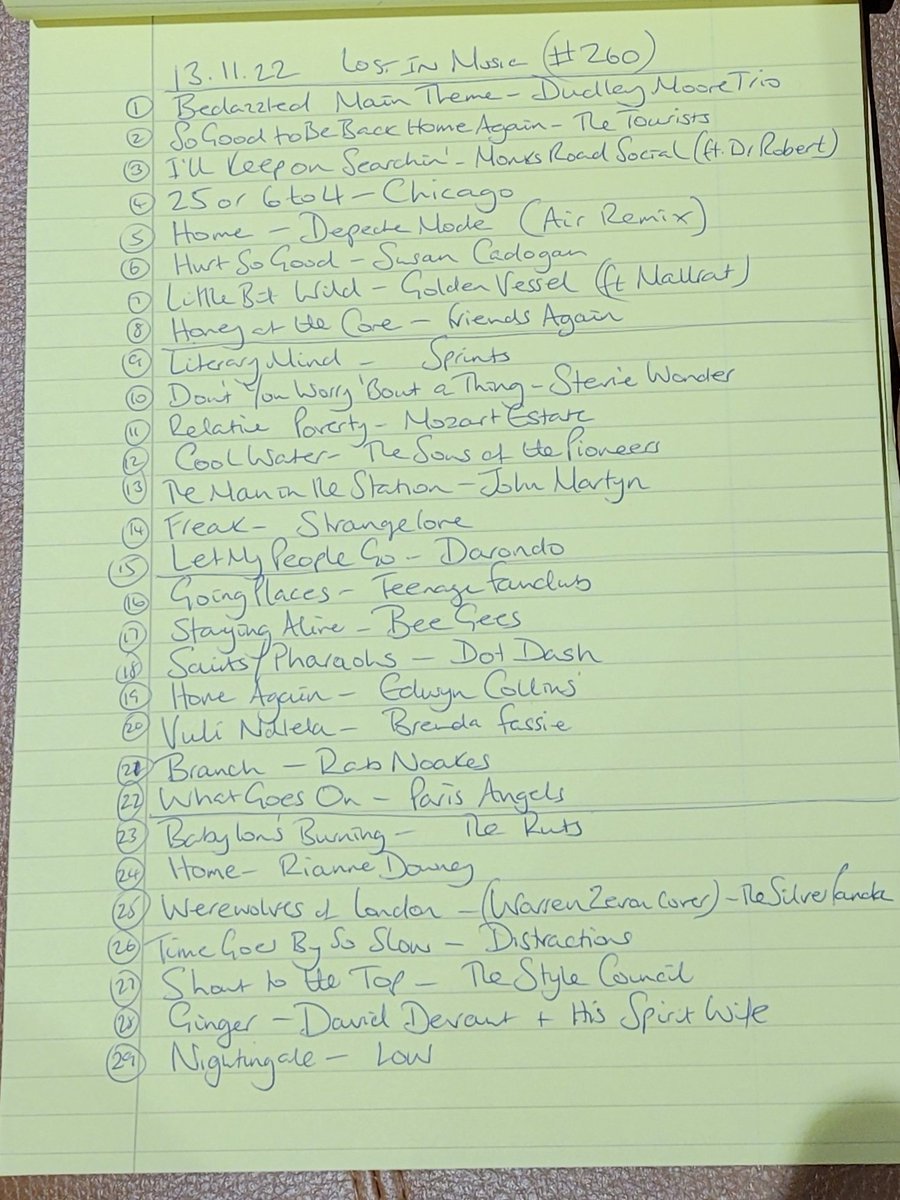 13.11.22 Lost In Music (#260)
① Bedazzled Main Theme - Dudley Moore Trio
② So Good to Be Back Home Again - The Tourists
③ I'll Keep on Searchin' - Monks Road Social (ft. Dr Robert)
④ 25 or 6 to 4 - Chicago
⑤ Home - Depeche Mode (Air Remix)
⑥ Hurt So Good - Susan Cadogan
⑦ Little Bit Wild - Golden Vessel (ft Mallrat)
⑧ Honey at the Core - Friends Again
⑨ Literary Mind - Sprints
⑩ Don't You Worry 'Bout a Thing - Stevie Wonder
⑪ Relative Poverty - Mozart Estate
⑫ Cool Water - The Sons of the Pioneers
⑬ The Man in the Station - John Martyn
⑭ Freak - Strangelove
⑮ Let My People Go - Darondo
⑯ Going Places - Teenage Fanclub
⑰ Staying Alive - Bee Gees
⑱ Saints/Pharaohs - Dot Dash
⑲ Home Again - Edwyn Collins
⑳ Vuli Ndlela - Brenda Fassie
㉑ Branch - Rab Noakes
㉒ What Goes On - Paris Angels
㉓ Babylon's Burning - The Ruts
㉔ Home - Rianne Downey
㉕ Werewolves of London - (Warren Zevon cover) - The Silver
㉖ Time Goes By So Slow - Distractions
㉗ Shout to the Top - The Style Council
㉘ Ginger - David Devant + His Spirit Wife
㉙ Nightingale - Low